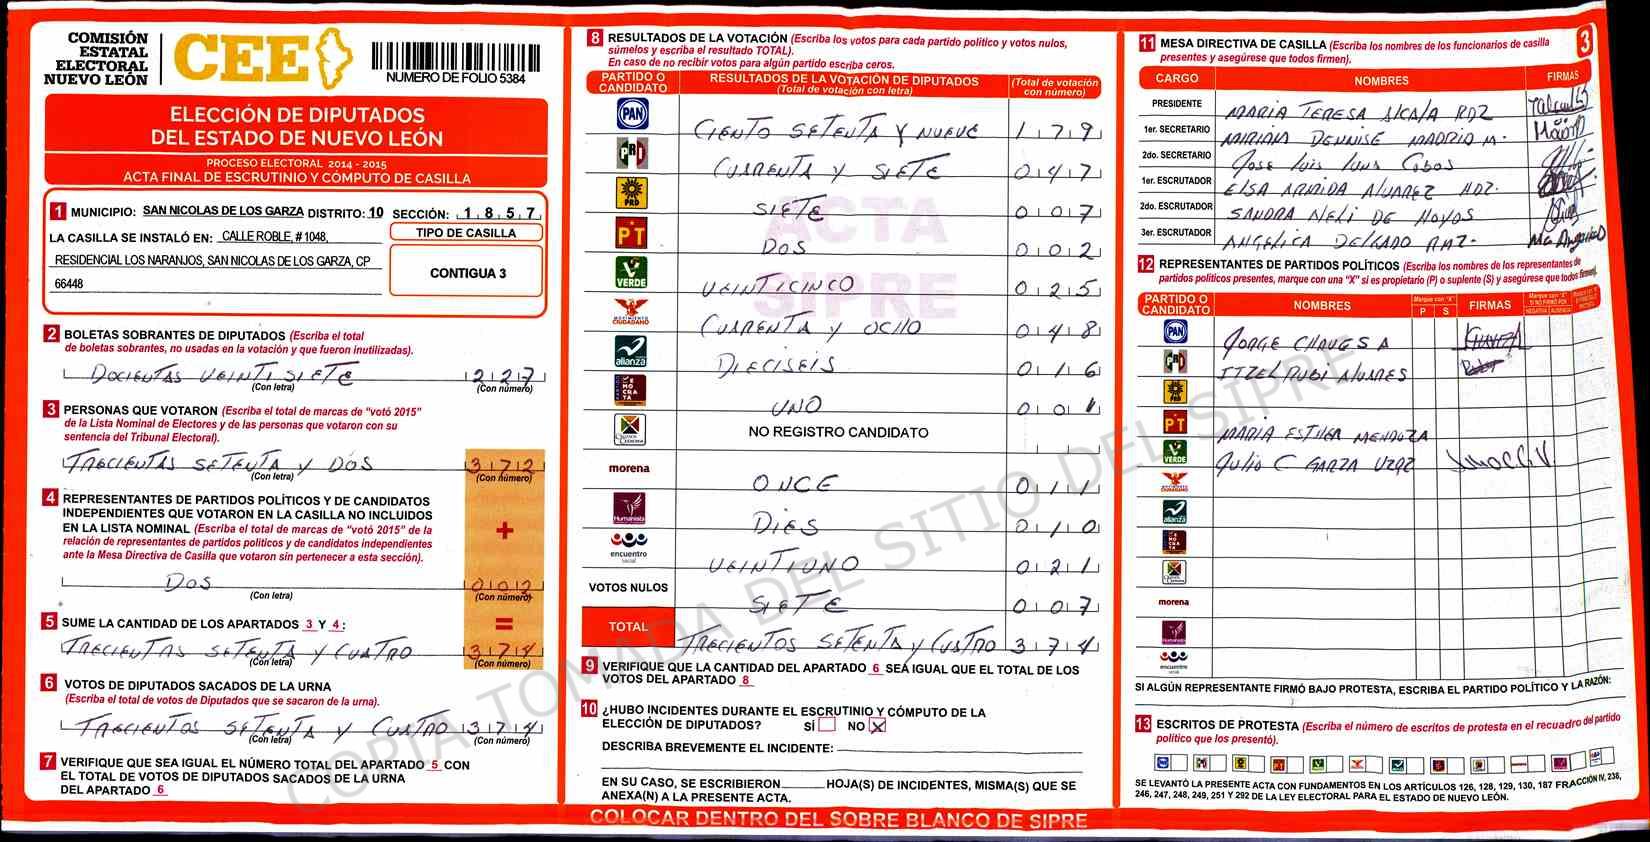 COMISIÓN
ESTATAL
ELECTORAL
NUEVO LEÓN
CEE
NUMERO DE FOLIO 5384
ELECCIÓN DE DIPUTADOS
DEL ESTADO DE NUEVO LEÓN
PROCESO ELECTORAL 2014 - 2015
ACTA FINAL DE ESCRUTINIO Y CÓMPUTO DE CASILLA
1 MUNICIPIO: SAN NICOLAS DE LOS GARZA DISTRITO: 10 SECCIÓN: 1 8 5 7
LA CASILLA SE INSTALÓ EN: CALLE ROBLE, # 1048,
RESIDENCIAL LOS NARANJOS, SAN NICOLAS DE LOS GARZA, CP
66448
TIPO DE CASILLA
CONTIGUA 3
2 BOLETAS SOBRANTES DE DIPUTADOS (Escriba el total
de boletas sobrantes, no usadas en la votación y que fueron inutilizadas).
DOCIENTAS VEINTI SIETE 2 2 7
(Con letra) (Con número)
3 PERSONAS QUE VOTARON (Escriba el total de marcas de "votó 2015"
de la Lista Nominal de Electores y de las personas que votaron con su
sentencia del Tribunal Electoral).
TRECIENTAS SETENTA Y DOS 3 7 2
(Con letra) (Con número)
4 REPRESENTANTES DE PARTIDOS POLÍTICOS Y DE CANDIDATOS
INDEPENDIENTES QUE VOTARON EN LA CASILLA NO INCLUIDOS
EN LA LISTA NOMINAL (Escriba el total de marcas de "votó 2015" de la
relación de representantes de partidos políticos y de candidatos independientes
ante la Mesa Directiva de Casilla que votaron sin pertenecer a esta sección).
+
DOS 0 0 2
(Con letra) (Con número)
5 SUME LA CANTIDAD DE LOS APARTADOS 3 Y 4: =
TRECIENTAS SETENTA Y CUATRO 3 7 4
(Con letra) (Con número)
6 VOTOS DE DIPUTADOS SACADOS DE LA URNA
(Escriba el total de votos de Diputados que se sacaron de la urna).
TRECIENTOS SETENTA Y CUATRO 3 7 4
(Con letra) (Con número)
7 VERIFIQUE QUE SEA IGUAL EL NÚMERO TOTAL DEL APARTADO 5 CON
EL TOTAL DE VOTOS DE DIPUTADOS SACADOS DE LA URNA
DEL APARTADO 6
8 RESULTADOS DE LA VOTACIÓN (Escriba los votos para cada partido político y votos nulos,
súmelos y escriba el resultado TOTAL).
En caso de no recibir votos para algún partido escriba ceros.
PARTIDO O CANDIDATO RESULTADOS DE LA VOTACIÓN DE DIPUTADOS (Total de votación con letra) (Total de votación con número)
PAN CIENTO SETENTA Y NUEVE 1 7 9
PRI CUARENTA Y SIETE 0 4 7
PRD SIETE 0 0 7
PT DOS 0 0 2
VERDE VEINTICINCO 0 2 5
MOVIMIENTO CIUDADANO CUARENTA Y OCHO 0 4 8
alianza DIECISEIS 0 1 6
DEMOCRATA UNO 0 0 1
NO REGISTRO CANDIDATO
morena ONCE 0 1 1
Humanista DIES 0 1 0
encuentro social VEINTIUNO 0 2 1
VOTOS NULOS SIETE 0 0 7
TOTAL TRECIENTOS SETENTA Y CUATRO 3 7 4
ACTA
SIPRE
9 VERIFIQUE QUE LA CANTIDAD DEL APARTADO 6 SEA IGUAL QUE EL TOTAL DE LOS
VOTOS DEL APARTADO 8
10 ¿HUBO INCIDENTES DURANTE EL ESCRUTINIO Y CÓMPUTO DE LA
ELECCIÓN DE DIPUTADOS? SÍ NO X
DESCRIBA BREVEMENTE EL INCIDENTE:
EN SU CASO, SE ESCRIBIERON HOJA(S) DE INCIDENTES, MISMA(S) QUE SE
ANEXA(N) A LA PRESENTE ACTA.
COLOCAR DENTRO DEL SOBRE BLANCO DE SIPRE
11 MESA DIRECTIVA DE CASILLA (Escriba los nombres de los funcionarios de casilla
presentes y asegúrese que todos firmen).
3
CARGO NOMBRES FIRMAS
PRESIDENTE MARIA TERESA ALCALA RDZ
1er. SECRETARIO MIRIAM DENNISE MADRID M.
2do. SECRETARIO JOSE LUIS LUNA COBOS
1er. ESCRUTADOR ELSA ARMIDA ALVAREZ HDZ.
2do. ESCRUTADOR SANDRA NELI DE HOYOS
3er. ESCRUTADOR ANGELICA DELGADO RMZ.
12 REPRESENTANTES DE PARTIDOS POLÍTICOS (Escriba los nombres de los representantes de
partidos políticos presentes, marque con una "X" si es propietario (P) o suplente (S) y asegúrese que todos firmen).
PARTIDO O CANDIDATO NOMBRES Marque con "X" P S FIRMAS
PAN JORGE CHAUGS A
PRI ITZEL RUBI ALVARES
PRD
PT MARIA ESTHER MENDOZA
VERDE JULIO C GARZA VZQZ
MOVIMIENTO CIUDADANO
alianza
morena
encuentro social
SI ALGÚN REPRESENTANTE FIRMÓ BAJO PROTESTA, ESCRIBA EL PARTIDO POLÍTICO Y LA RAZÓN:
13 ESCRITOS DE PROTESTA (Escriba el número de escritos de protesta en el recuadro del partido
político que los presentó).
SE LEVANTÓ LA PRESENTE ACTA CON FUNDAMENTOS EN LOS ARTÍCULOS 126, 128, 129, 130, 187 FRACCIÓN IV, 238,
246, 247, 248, 249, 251 Y 292 DE LA LEY ELECTORAL PARA EL ESTADO DE NUEVO LEÓN.
COPIA TOMADA DEL SITIO DEL SIPRE